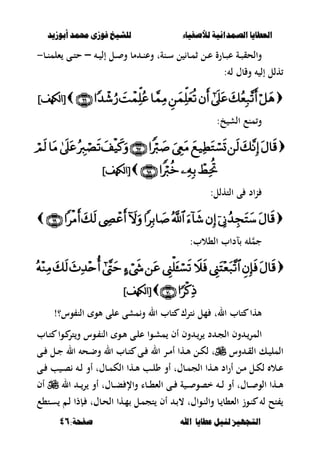 العطايا الصمدانية للأصفياء للشيخ فوزى محمد أبوزيد
والحقبة عبارة عن ثمانين سنة، وعندما وصل إليه – حتى يعلمنا -
تذلل إليه وقال له:
﴿ هَلْ أَتَّبِعُكَ عَلَىٰٓ أَن تُعَلِّمَنِ مِمَّا عُلِّمْتَ رُشْدًا ﴾ [الكهف]
وتمنع الشيخ:
﴿ قَالَ إِنَّكَ لَن تَسْتَطِيعَ مَعِىَ صَبْرًا ۝ وَكَيْفَ تَصْبِرُ عَلَىٰ مَا لَمْ
تُحِطْ بِهِۦ خُبْرًا ﴾ [الكهف]
فزاد فى التذلل:
﴿ قَالَ سَتَجِدُنِىٓ إِن شَآءَ ٱللَّهُ صَابِرًا وَلَآ أَعْصِى لَكَ أَمْرًا ﴾
جمَّله بآداب الطلاب:
﴿ قَالَ فَإِنِ ٱتَّبَعْتَنِى فَلَا تَسْـَٔلْنِى عَن شَىْءٍ حَتَّىٰٓ أُحْدِثَ لَكَ مِنْهُ
ذِكْرًا ﴾ [الكهف]
هذا كتاب الله، فهل نترك كتاب الله ونمشى على هوى النفوس؟!
المريدون الجدد يريدون أن يمشوا على هوى النفوس ويتركوا كتاب
المليك القدوس، لكن هذا أمر الله وضحه الله فى كتاب الله فى جل
علاه لكل من أراد هذا الجمال، أو طلب هذا الكمال، أو له نصيب فى
هذا الوصال، أو له خصوصية فى العطاء والإفضال، أو يريد الله أن
يفتح له كنوز العطايا والنوال، لابد أن يتجمل بهذا الحال، فإذا لم يستطع
التجهيز لنيل عطايا الله صفحة:٤٦